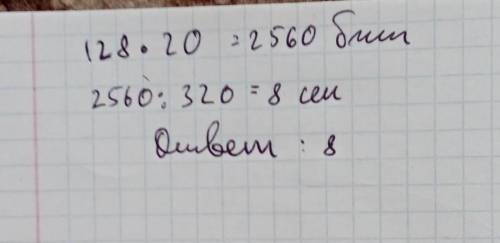 128 • 20 = 2560 бит
2560 : 320 = 8 сек
Ответ : 8